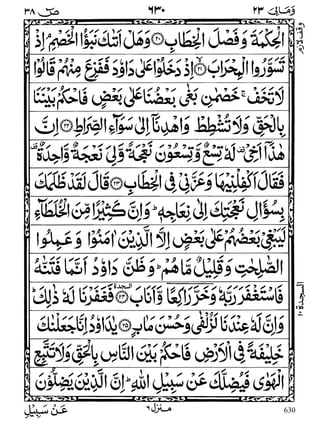 وَمَالِیَ ٢٣
٦٣٠
صٓ ٣٨
الْحِكْمَةَ وَ فَصْلَ الْخِطَابِ ﴿٢٠﴾ وَهَلْ اَتٰىكَ نَبَؤُا الْخَصْمِ ۘ اِذْ
تَسَوَّرُوا الْمِحْرَابَ ﴿٢١﴾ اِذْ دَخَلُوْا عَلٰى دَاوٗدَ فَفَزِعَ مِنْهُمْ قَالُوْا
لَا تَخَفْ ۚ خَصْمٰنِ بَغٰى بَعْضُنَا عَلٰى بَعْضٍ فَاحْكُمْ بَيْنَنَا
بِالْحَقِّ وَلَا تُشْطِطْ وَاهْدِنَاۤ اِلٰى سَوَآءِ الصِّرَاطِ ﴿٢٢﴾ اِنَّ
هٰذَاۤ اَخِيْ ۣ لَهٗ تِسْعٌ وَّ تِسْعُوْنَ نَعْجَةً وَّلِيَ نَعْجَةٌ وَّاحِدَةٌ ۣ
فَقَالَ اَكْفِلْنِيْهَا وَعَزَّنِيْ فِي الْخِطَابِ ﴿٢٣﴾ قَالَ لَقَدْ ظَلَمَكَ
بِسُؤَالِ نَعْجَتِكَ اِلٰى نِعَاجِهٖ ؕ وَاِنَّ كَثِيْرًا مِّنَ الْخُلَطَآءِ
لَيَبْغِيْ بَعْضُهُمْ عَلٰى بَعْضٍ اِلَّا الَّذِيْنَ اٰمَنُوْا وَ عَمِلُوا
الصّٰلِحٰتِ وَقَلِيْلٌ مَّا هُمْ ؕ وَ ظَنَّ دَاوٗدُ اَنَّمَا فَتَنّٰهُ
فَاسْتَغْفَرَ رَبَّهٗ وَخَرَّ رَاكِعًا وَّاَنَابَ ﴿٢٤﴾ السجدة فَغَفَرْنَا لَهٗ ذٰلِكَ ؕ
وَاِنَّ لَهٗ عِنْدَنَا لَزُلْفٰى وَحُسْنَ مَاٰبٍ ﴿٢٥﴾ يٰدَاوٗدُ اِنَّا جَعَلْنٰكَ
خَلِيْفَةً فِي الْاَرْضِ فَاحْكُمْ بَيْنَ النَّاسِ بِالْحَقِّ وَلَا تَتَّبِعِ
الْهَوٰى فَيُضِلَّكَ عَنْ سَبِيْلِ اللّٰهِ ؕ اِنَّ الَّذِيْنَ يَضِلُّوْنَ
وقف لازم
السجدة ١٠
عَنْ سَبِيْلِ
منزل ٦
630